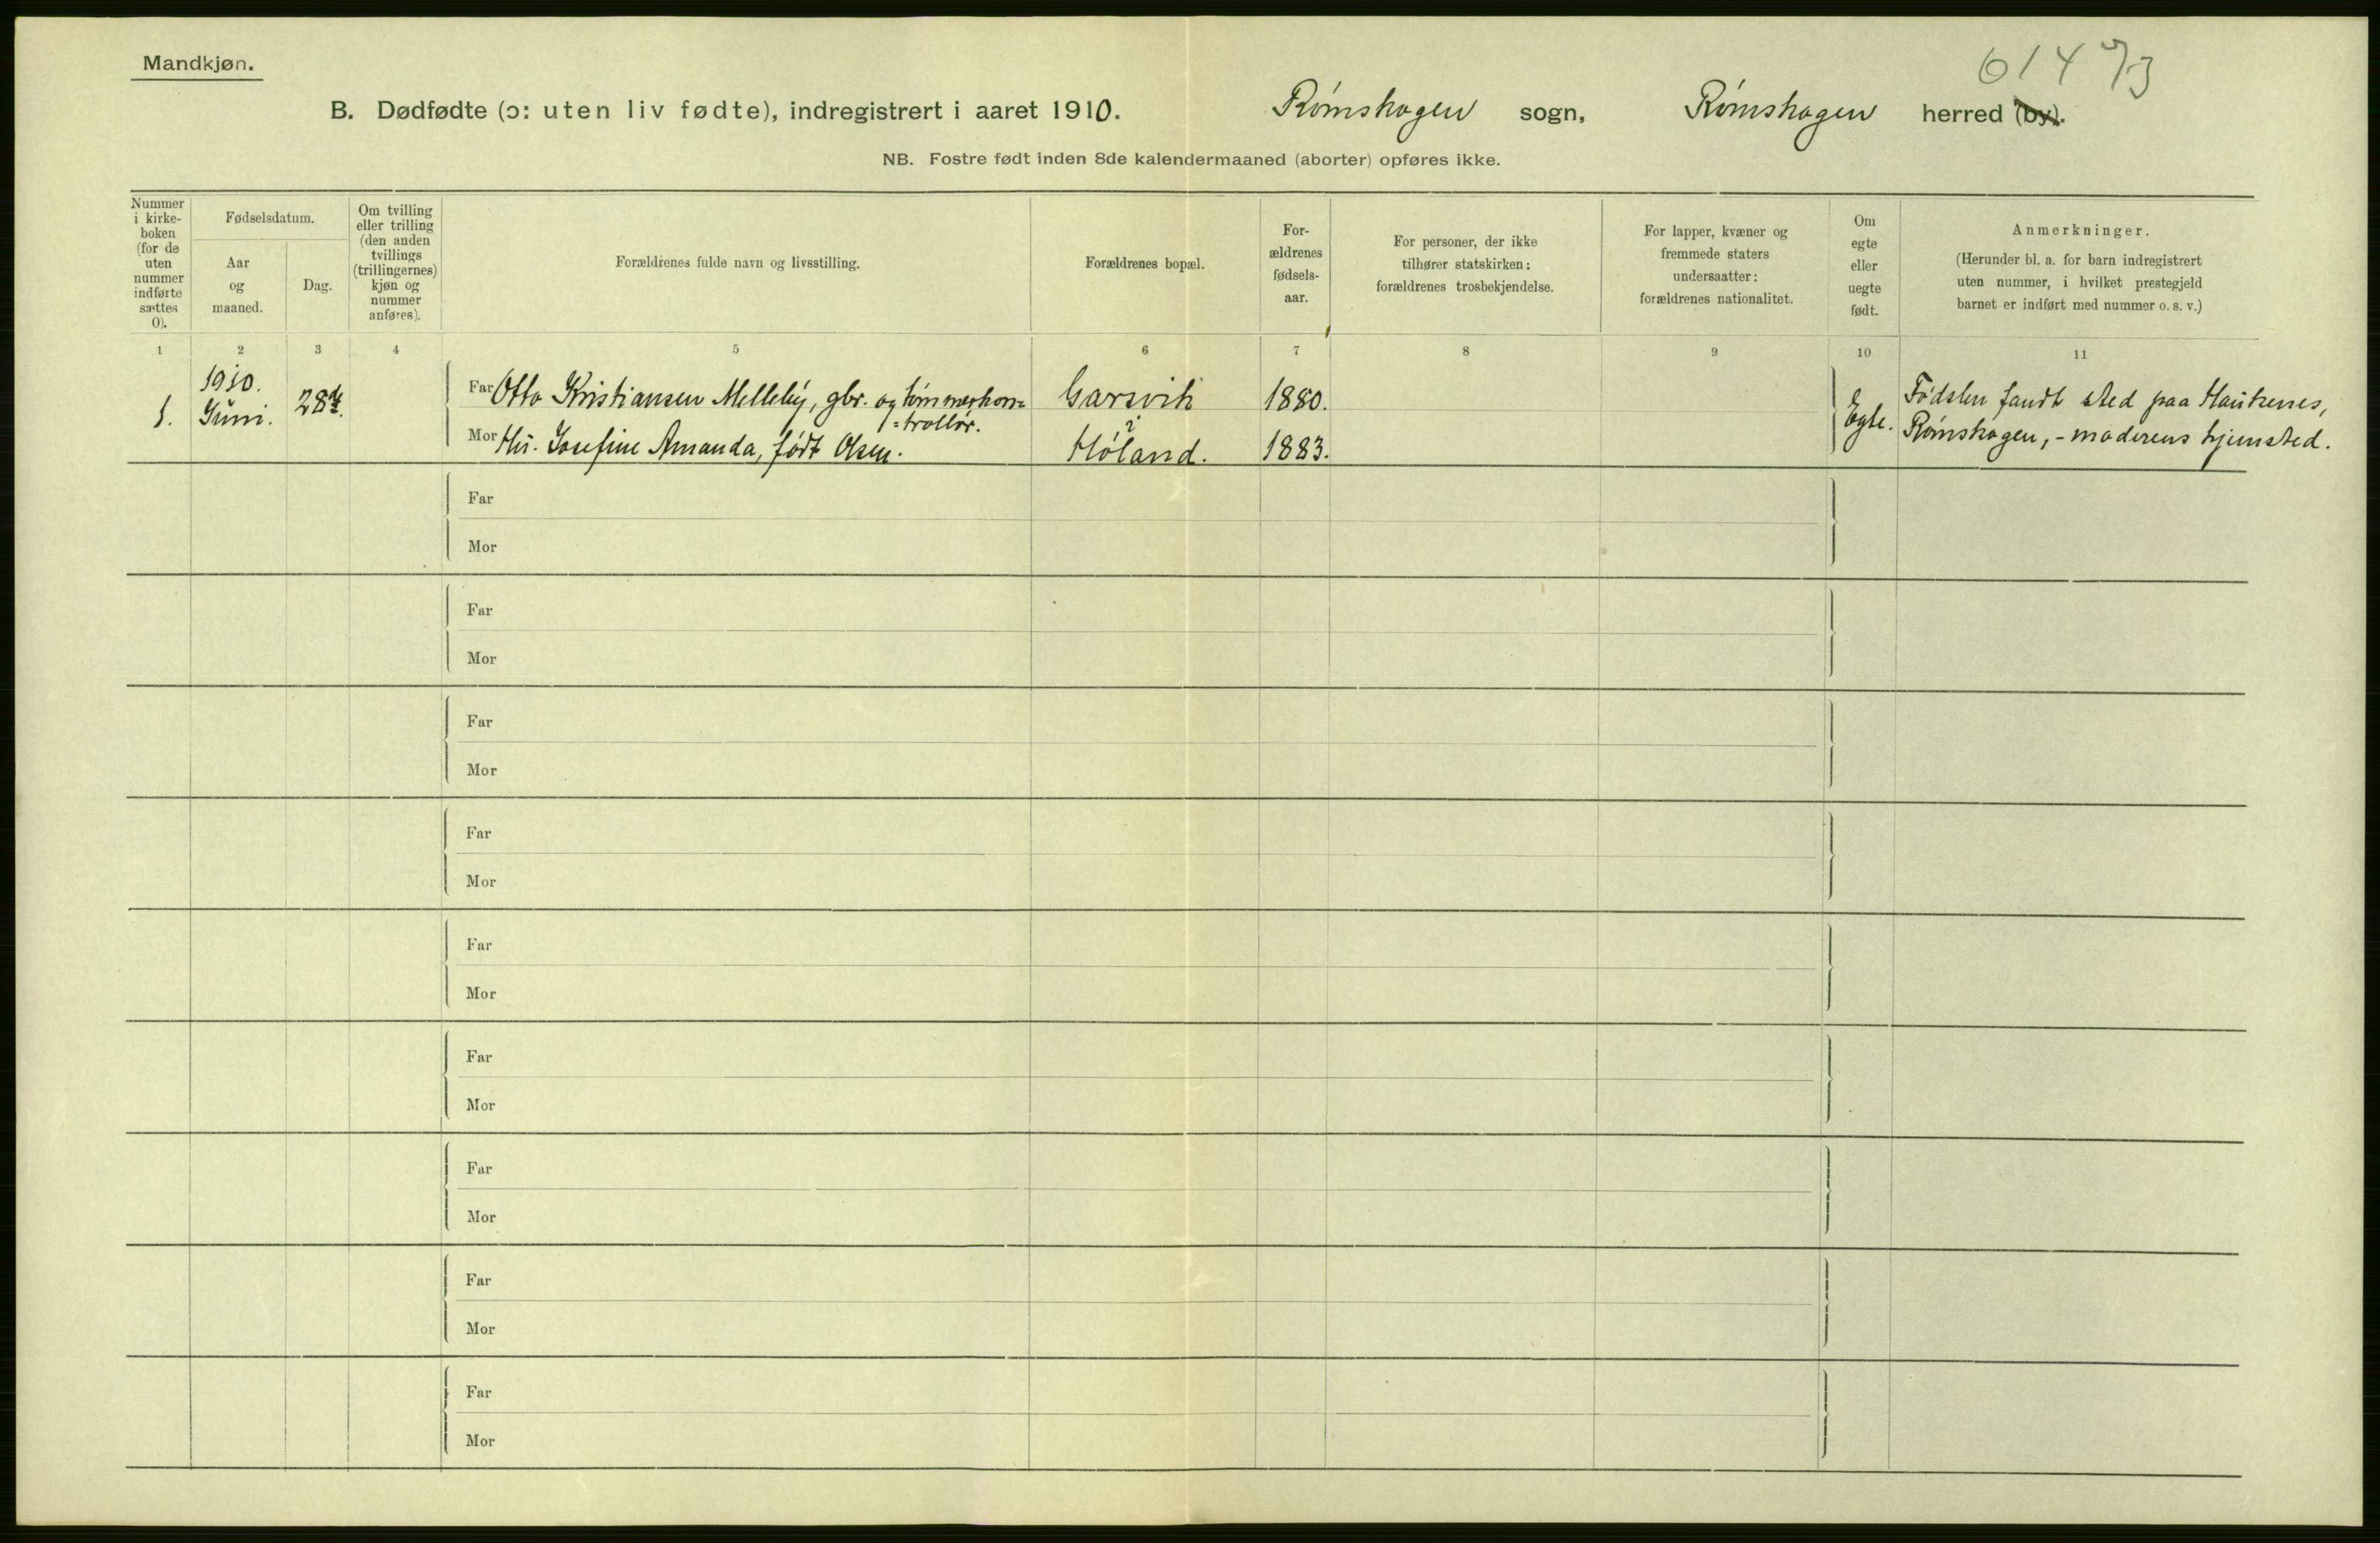 Mandkjøn.
61473
B. Dødfødte (ɔ: uten liv fødte), indregistrert i aaret 1910. Rømskogen sogn, Rømskogen herred (by).
NB. Fostre født inden 8de kalendermaaned (aborter) opføres ikke.
Nummer
i kirke-
boken
(for de
uten
nummer
indførte
sættes
0).
Fødselsdatum.
Aar
og
maaned.
Dag.
Om tvilling
eller trilling
(den anden
tvillings
(trillingernes)
kjøn og
nummer
anføres).
Forældrenes fulde navn og livsstilling.
Forældrenes bopæl.
For-
ældrenes
fødsels-
aar.
For personer, der ikke
tilhører statskirken:
forældrenes trosbekjendelse.
For lapper, kvæner og
fremmede staters
undersaatter:
forældrenes nationalitet.
Om
egte
eller
uegte
født.
Anmerkninger.
(Herunder bl. a. for barn indregistrert
uten nummer, i hvilket prestegjeld
barnet er indført med nummer o. s. v.)
1 2 3 4 5 6 7 8 9 10 11
1.
1910.
Juni.
28de.
Far Otto Kristiansen Melleby, gbr. og tømmerkon=
=trollør.
Garsvik
1880.
Mor Hu. Josefine Amanda, født Olsen.
i
Høland.
1883.
Egte.
Fødslen fandt sted paa Haukenes,
Rømskogen, - moderens hjemsted.
Far
Mor
Far
Mor
Far
Mor
Far
Mor
Far
Mor
Far
Mor
Far
Mor
Far
Mor
Far
Mor